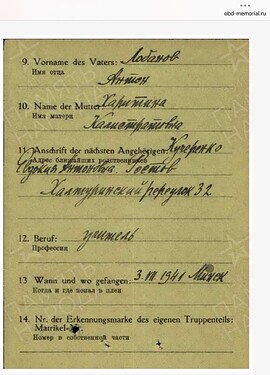 obd-memorial.ru
9. Vorname des Vaters: Лобанов
Имя отца Антон
10. Name der Mutter Харитина
Имя матери Калистратовна
11 Anschrift der nächsten Angehörigen: Кучеренко
Адрес ближайших родственников
Евдокия Антоновна Ростов
Халтуринский переулок 32
12. Beruf: учитель
Профессия
13 Wann und wo gefangen: 3. VII 1941 Минск
Когда и где попал в плен
14. Nr. der Erkennungsmarke des eigenen Truppenteils:
Matrikel-Nr.
Номер в собственной части